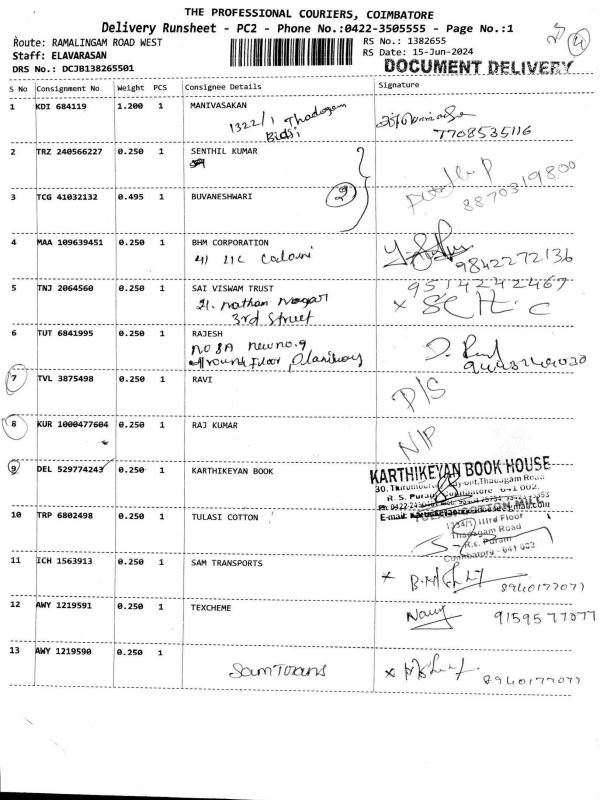 THE PROFESSIONAL COURIERS, COIMBATORE
Delivery Runsheet - PC2 - Phone No.:0422-3505555 - Page No.:1
Route: RAMALINGAM ROAD WEST
RS No.: 1382655
Staff: ELAVARASAN
RS Date: 15-Jun-2024
DRS No.: DCJB138265501
DOCUMENT DELIVERY
S No Consignment No Weight PCS Consignee Details Signature
1 KDI 684119 1.200 1 MANIVASAKAN
1322/1 Thadagam
7708535116
2 TRZ 240566227 0.250 1 SENTHIL KUMAR
3 TCG 41032132 0.495 1 BUVANESHWARI
2
8870319800
4 MAA 109639451 0.250 1 BHM CORPORATION
9842272136
5 TNJ 2064560 0.250 1 SAI VISWAM TRUST
21. Natham Nagar
3rd Street
9514242467
6 TUT 6841995 0.250 1 RAJESH
No 8A New no.9
Ground Floor
7 TVL 3875498 0.250 1 RAVI
P/S
8 KUR 1000477604 0.250 1 RAJ KUMAR
N/P
9 DEL 529774243 0.250 1 KARTHIKEYAN BOOK
KARTHIKEYAN BOOK HOUSE
Thadagam Road
R. S. Puram, Coimbatore - 641 002.
10 TRP 6802498 0.250 1 TULASI COTTON
TULASI COTTON MILL
IIIrd Floor
Thadagam Road
R.S. Puram
Coimbatore - 641 002
11 ICH 1563913 0.250 1 SAM TRANSPORTS
8940177077
12 AWY 1219591 0.250 1 TEXCHEME
9159577077
13 AWY 1219590 0.250 1
Sam Trans
8940177077